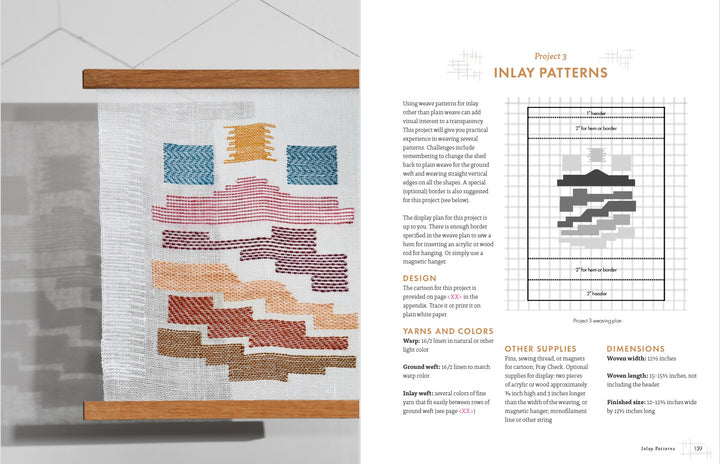 Project 3
INLAY PATTERNS
Using weave patterns for inlay
other than plain weave can add
visual interest to a transparency.
This project will give you practical
experience in weaving several
patterns. Challenges include
remembering to change the shed
back to plain weave for the ground
weft and weaving straight vertical
edges on all the shapes. A special
(optional) border is also suggested
for this project (see below).
The display plan for this project is
up to you. There is enough border
specified in the weave plan to sew a
hem for inserting an acrylic or wood
rod for hanging. Or simply use a
magnetic hanger.
DESIGN
The cartoon for this project is
provided on page <XX> in the
appendix. Trace it or print it on
plain white paper.
YARNS AND COLORS
Warp: 16/2 linen in natural or other
light color
Ground weft: 16/2 linen to match
warp color
Inlay weft: several colors of fine
yarn that fit easily between rows of
ground weft (see page <XX>)
1" header
2" for hem or border
2" for hem or border
2" header
Project 3 weaving plan
OTHER SUPPLIES
Pins, sewing thread, or magnets
for cartoon; Fray Check. Optional
supplies for display: two pieces
of acrylic or wood approximately
inch high and 3 inches longer
than the width of the weaving, or
magnetic hanger; monofilament
line or other string
DIMENSIONS
Woven width: 12½ inches
Woven length: 15–15½ inches, not
including the header
Finished size: 12–12½ inches wide
by 12½ inches long
Inlay Patterns 139